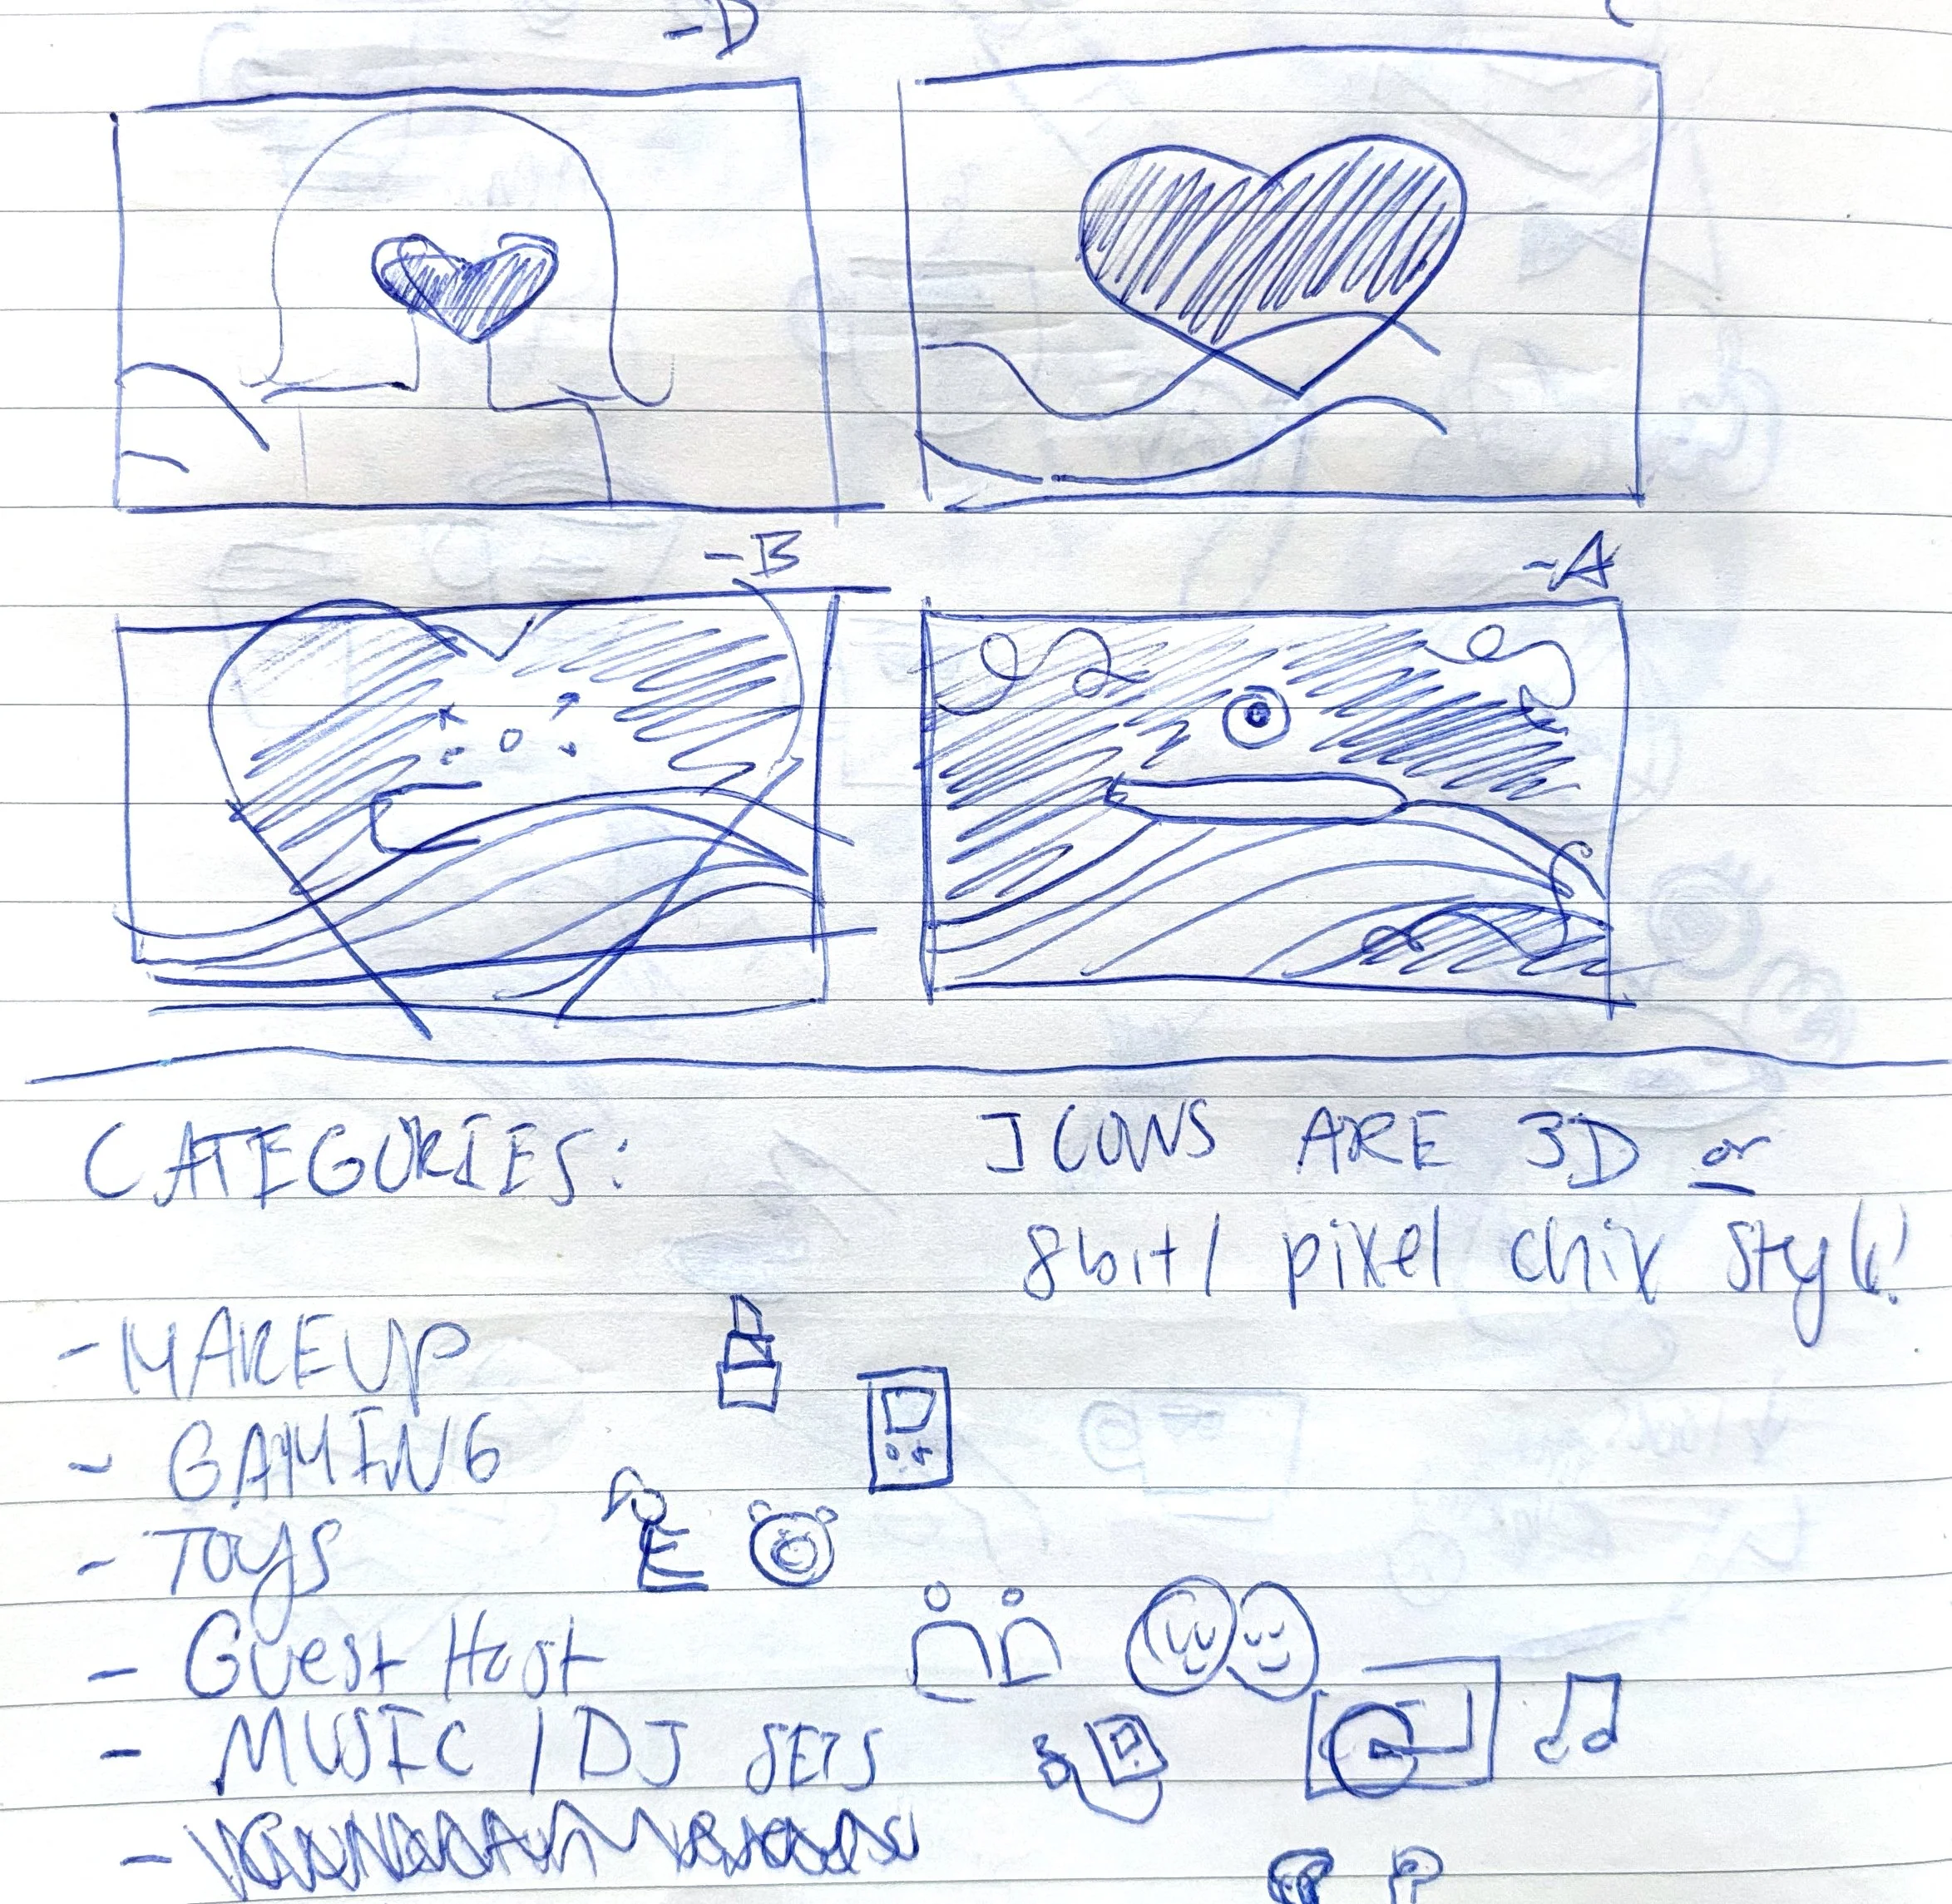 -D
C
-B
-A
CATEGORIES:
ICONS ARE 3D or
8bit/ pixel chix style!
- MAKEUP
- GAMING
- TOYS
- Guest Host
- MUSIC / DJ SETS
-